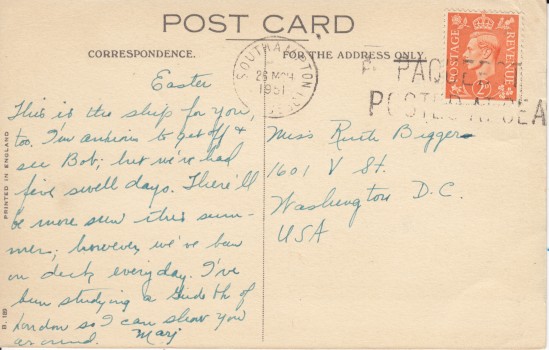 POST CARD
CORRESPONDENCE.
FOR THE ADDRESS ONLY.
Easter
This is the ship for you,
too. I'm anxious to get off &
see Bob; but we've had
five swell days. There'll
be more sun this sum-
mer; however, we've been
on deck everyday. I've
been studying a Guide of
London so I can show you
around. Marj
PRINTED IN ENGLAND
B. 189
SOUTHAMPTON
26 MCH
1951
PAQUEBOT
POSTED AT SEA
POSTAGE
REVENUE
2D
Miss Ruth Biggers
1601 V St.
Washington D.C.
USA